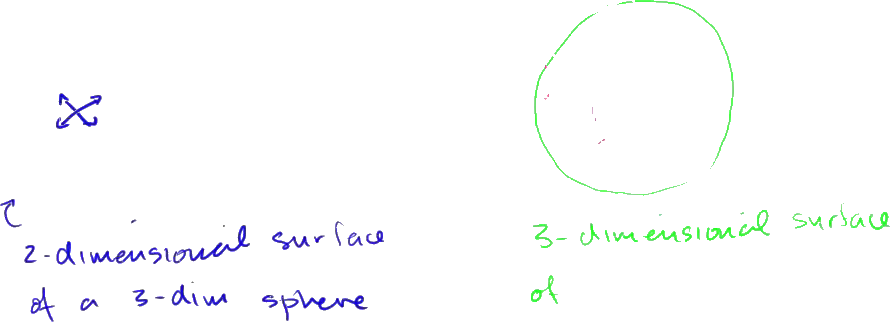 2-dimensional surface
of a 3-dim sphere
3-dimensional surface
of